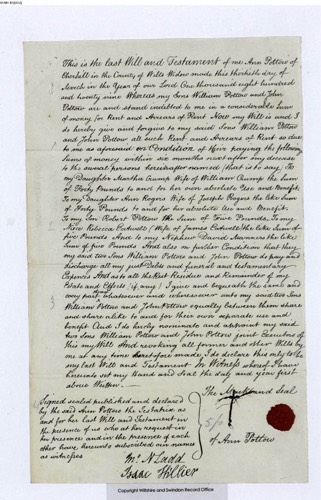 This is the last Will and Testament of me Ann Pottow of
in the County of Wilts Widow made this thirtieth day of
March in the Year of our Lord One thousand eight hundred
and twenty nine Whereas my Sons William Pottow and John
Pottow are and stand indebted to me in a considerable Sum
of money for Rent and Arrears of Rent Now my Will is and I
do hereby give and forgive to my said Sons William Pottow
and John Pottow all such Rent and Arrears of Rent so due
to me as aforesaid on Condition of their paying the following
Sums of money within six months next after my decease
to the several persons hereinafter named (that is to say) To
my Daughter Martha Crump Wife of William Crump the Sum
of Forty Pounds to and for her own absolute Use and Benefit
To my Daughter Ann Rogers Wife of Joseph Rogers the like Sum
of Forty Pounds to and for her absolute Use and Benefit
To my Son Robert Pottow the Sum of Pounds To my
Niece Rebecca (Wife of James the like Sum of
five Pounds And to my Nephew the like
Sum of five Pounds And also on further Condition that they
my said two Sons William Pottow and John Pottow do pay and
discharge all my just Debts and funeral and testamentary
Expences And as to all the Rest Residue and Remainder of my
Estate and Effects (if any) I give and bequeath the same and
every part whatsoever and wheresoever unto my said two Sons
William Pottow and John Pottow equally between them share
and share alike to and for their own separate use and
benefit And I do hereby nominate and appoint my said
two Sons William Pottow and John Pottow joint Executors of
this my Will And revoking all former and other Wills by
me at any time heretofore made I do declare this only to be
my last Will and Testament In Witness whereof I have
hereunto set my Hand and Seal the day and year first
above Written
Signed sealed published and declared
by the said Ann Pottow the Testatrix as
and for her last Will and Testament in
the presence of us who at her request in
her presence and in the presence of each
other have hereunto subscribed our names
as witnesses
The Mark and Seal
of Ann Pottow
Wm N Ladd
Isaac Hillier
Copyright Wiltshire and Swindon Record Office